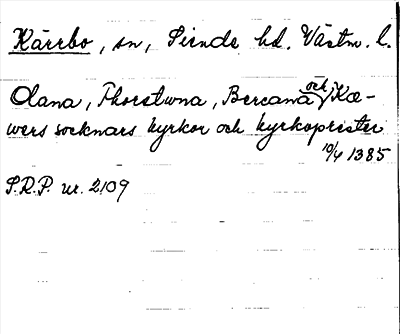 Kärrbo, sn, Siende hd. Västm. l.
Olana, Thorstwna, Bercama och Kæ-
wers socknars kyrkor och kyrkoprester
10/4 1385
S.R.P. nr. 2109